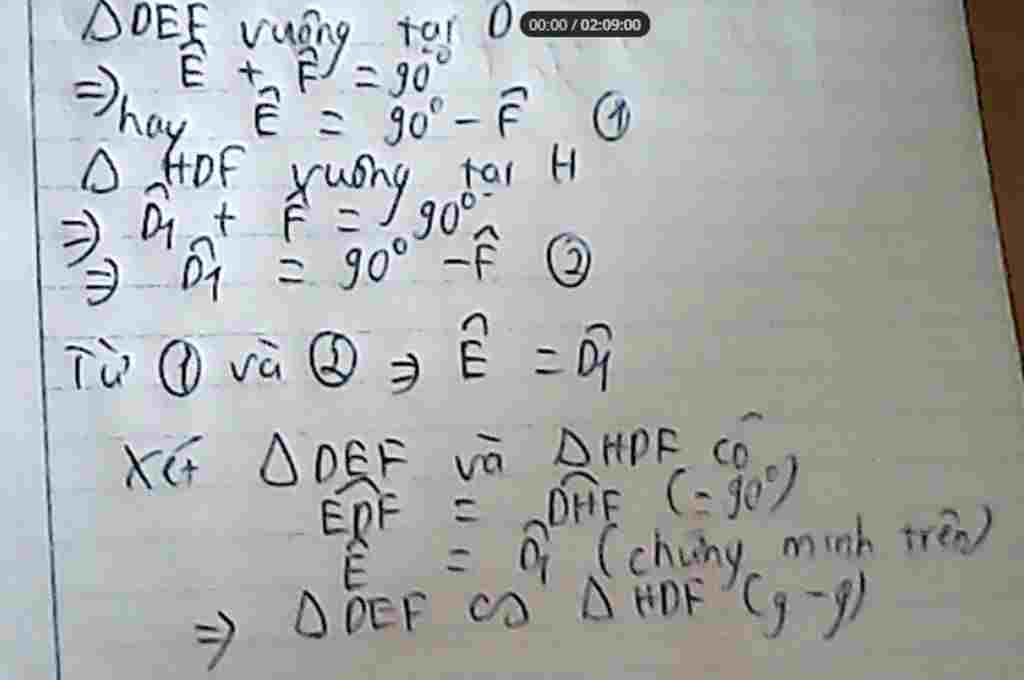 ΔDEF vuông tại D
00:00 / 02:09:00
⇒ Ê + F̂ = 90°
hay Ê = 90° - F̂ ①
Δ HDF vuông tại H
⇒ D̂₁ + F̂ = 90°
⇒ D̂₁ = 90° - F̂ ②
Từ ① và ② ⇒ Ê = D̂₁
Xét ΔDEF và ΔHDF có
EDF = DHF (= 90°)
Ê = D̂₁ (chứng minh trên)
⇒ Δ DEF ∽ Δ HDF (g-g)